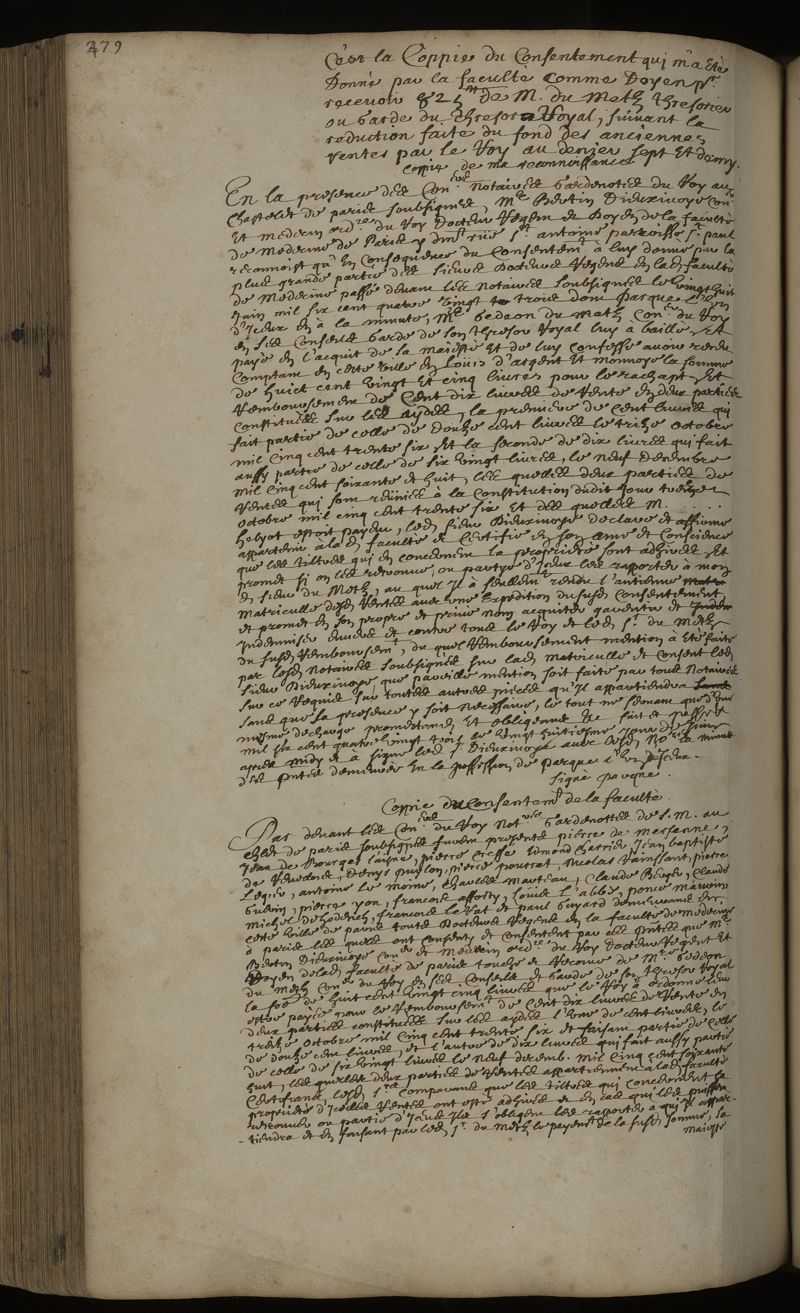 279
C'est la Coppie du Consentement qui m'a été
Donné par la faculté Comme Doyen pr
recevoir 825 lt de M. du Metz thresorier
ou Garde du thresor Royal, suivant la
reduction faite du fond des anciennes
rentes par le Roy au denier sept Et demy.
Coppie de ma reconnoissance
En la presence des Coners Notaires Gardenotes du Roy au
Chastelet de paris soubsignés, Mre Bertin Dieuxivoye Coner
Et medecin ordre du Roy Docteur Regent et Doyen de la faculté
de Medecine de Paris y demt rüe St antoine parroisse St paul
reconnoist qu'en Consequence du Consentemt à luy donné par la
plus grande partie des sieurs Docteurs Regens en lad faculté
de Medecine passé devant les Notaires soubsignés le vingt huit
Juin mil six cent quatre vingt trois dont Parque l'un
d'iceux en a la minute, Mre Gedeon du Metz Coner du Roy
en ses Conseils Garde de son thresor Royal luy a baillé, Et
payé en l'acquit de sa majesté Et de luy Confesse avoir receu
Comptant en cette ville en Loüis d'argent Et monnoye la somme
de huict cent vingt Et cinq livres pour le rachapt, Et
Remboursement de Cent dix livres de Rente en deux parties
Constituées sur les aydes, la premiere de Cent livres qui
fait partie de celle de Douze cent livres le treize octobre
mil Cinq cent trente six, Et la seconde de dix livres qui fait
aussy partie de celle de six vingt livres, le neuf decembre
mil Cinq cent soixante et huit, les quelles deux parties de
Rentes qui sont reünies à la Constitution dudit jour treize
octobre mil cinq cent trente six Et des quelles M. . .
helyot estoit payeur, led sieur Dieuxivoye declare et affirme
appartenir à lad faculté et Certifie en son ame et Conscience
que les tiltres qui en concernent la proprieté sont adhirés, Et
promet si on les retrouve, ou partye d'iceux les rapporter à mon
d sieur du Metz, au quel il a seullemt rendu l'antienne
Matriculle desd Rentes avec une Expedition dususd Consentement
et promet en son propre et privé nom acquiter garentir et
Indemniser envers et contre tous le Roy et led Sr du Metz
du susd Remboursemt, du quel Remboursement mention a été faite
par lesd Notaires soubsignés sur lad matriculle et Consent led
sieur Dieuxivoye que pareille mention soit faite par tous Notaires
sur ce Requis sur toutes autres pieces qu'il appartiendra
sans que sa presence y soit necessaire, le tout ne servant que d'une
mesme decharge promettant Et obligeant &c fait et passé
mil six cent quatre vingt trois le vingt huitiesme Jour de Juin
apres midy et a signé led Sr Dieuxivoye avec lesd Nores la minutte
des pntes demeurée En la possession de Parque l'un d'iceux.
signé parque.
Coppie du Consentemt de la faculté.
Par devant les Coners du Roy Notres Gardenottes de S. M. au
Chlet de paris soubsignés furent presents pierre de Mersenne,
Jean de Bourges l'aisné, pierre Cressé Edmond Charrier Jean baptiste
Docteurs Regens en la faculté de Medecine
à paris les quels ont consenty et consentent par ces pntes que Mre
Bertin Dieuxivoye Coner et Medecin ordre du Roy Docteur Regent Et
Doyen delad faculté de paris touche et Recoive de Mre Gedeon
du Metz Coner du Roy en ses Conseils et Garde de son thresor Royal
la soe de huit cent vingt cinq livres que le Roy a ordonné leur
estre payée pour le Remboursemt de Cent dix livres de Rente en
deux parties constituées sur les aydes l'une de cent livres, le
treize octobre mil cinq cent trente six et faisant partie de celle
de douze cent livres, et l'autre de dix livres qui fait aussy partie
de celle de six vingt livres le neuf decemb. mil cinq cent soixante
huit, les quelles deux parties de Rentes appartiennent à lad faculté
Certifiant lesd srs Comparans que les tiltres qui concernent la
proprieté d'icelles Rentes ont esté adhirés et en cas qu'ils puissent
retrouver ou partie d'iceux ils s'obligent les rapporter à qui il appar-
-tiendra et en faisant par led Sr du Metz le payemt de la susd somme, sa
majesté